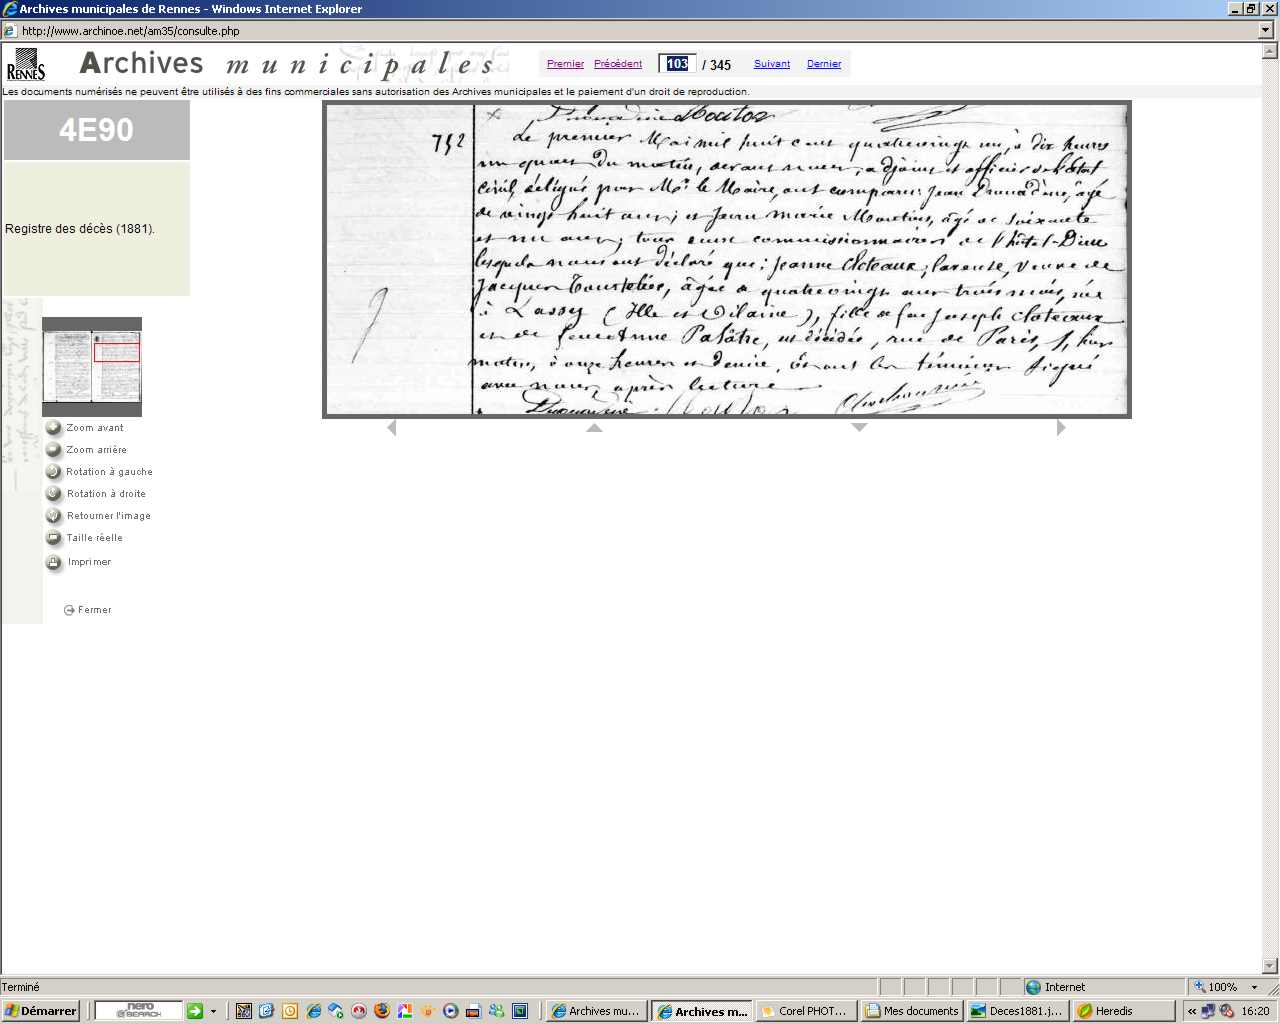 Archives municipales de Rennes - Windows Internet Explorer
http://www.archinoe.net/am35/consulte.php
RENNES
Archives municipales
Premier Précédent 103 / 345 Suivant Dernier
Les documents numérisés ne peuvent être utilisés à des fins commerciales sans autorisation des Archives municipales et le paiement d'un droit de reproduction.
4E90
Registre des décès (1881).
752
Le premier Mai mil huit cent quatrevingt un, à dix heures
un quart du matin, devant nous, adjoint et officier de l'état
civil, délégué par Mr. le Maire, ont comparu: Jean, âgé
de vingt huit ans; et Jean Marie, âgé de soixante
et un ans; tous deux commissionnaires de l'hôtel-Dieu
lesquels nous ont déclaré que: Jeanne Cloteaux, laveuse, veuve de
Jacques, âgée de quatrevingt ans trois mois, née
à Lassy (Ille et Vilaine), fille de feu Joseph Cloteaux
et de feue Anne Palâtre, est décédée, rue de Paris, 1, hier
matin, à onze heures et demie, et ont les témoins signé
avec nous, après lecture
Zoom avant
Zoom arrière
Rotation à gauche
Rotation à droite
Retourner l'image
Taille réelle
Imprimer
Fermer
Terminé
Internet
100%
Démarrer
nero
SEARCH
Archives mu...
Archives m...
Corel PHOT...
Mes documents
Deces1881.j...
Heredis
«
16:20